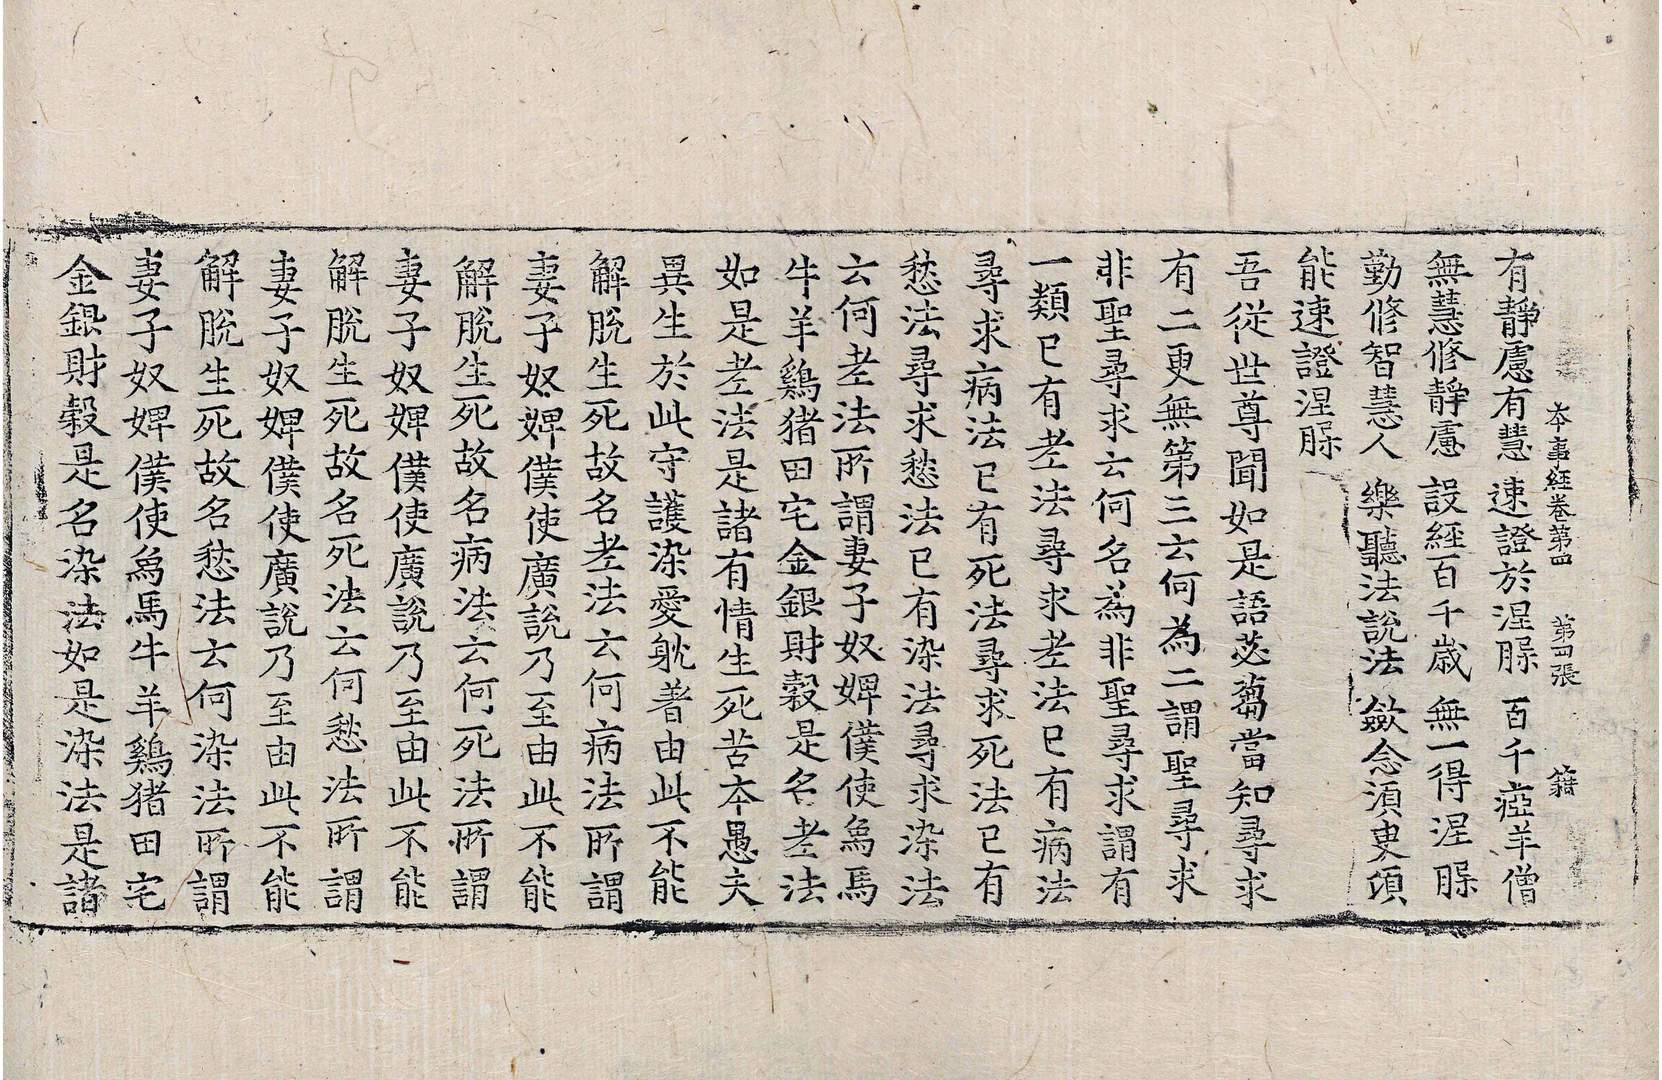 本事経卷第四 第四張 籍
有靜慮有慧 速證於涅槃 百千瘂羊僧
無慧修靜慮 設經百千歲 無一得涅槃
勤修智慧人 樂聽法說法 斂念須臾頃
能速證涅槃
吾從世尊聞如是語苾蒭當知尋求
有二更無第三云何為二謂聖尋求
非聖尋求云何名為非聖尋求謂有
一類已有老法尋求老法已有病法
尋求病法已有死法尋求死法已有
愁法尋求愁法已有染法尋求染法
云何老法所謂妻子奴婢僕使象馬
牛羊鷄猪田宅金銀財穀是名老法
如是老法是諸有情生死苦本愚夫
異生於此守護染愛躭著由此不能
解脫生死故名老法云何病法所謂
妻子奴婢僕使廣說乃至由此不能
解脫生死故名病法云何死法所謂
妻子奴婢僕使廣說乃至由此不能
解脫生死故名死法云何愁法所謂
妻子奴婢僕使廣說乃至由此不能
解脫生死故名愁法云何染法所謂
妻子奴婢僕使象馬牛羊鷄猪田宅
金銀財穀是名染法如是染法是諸